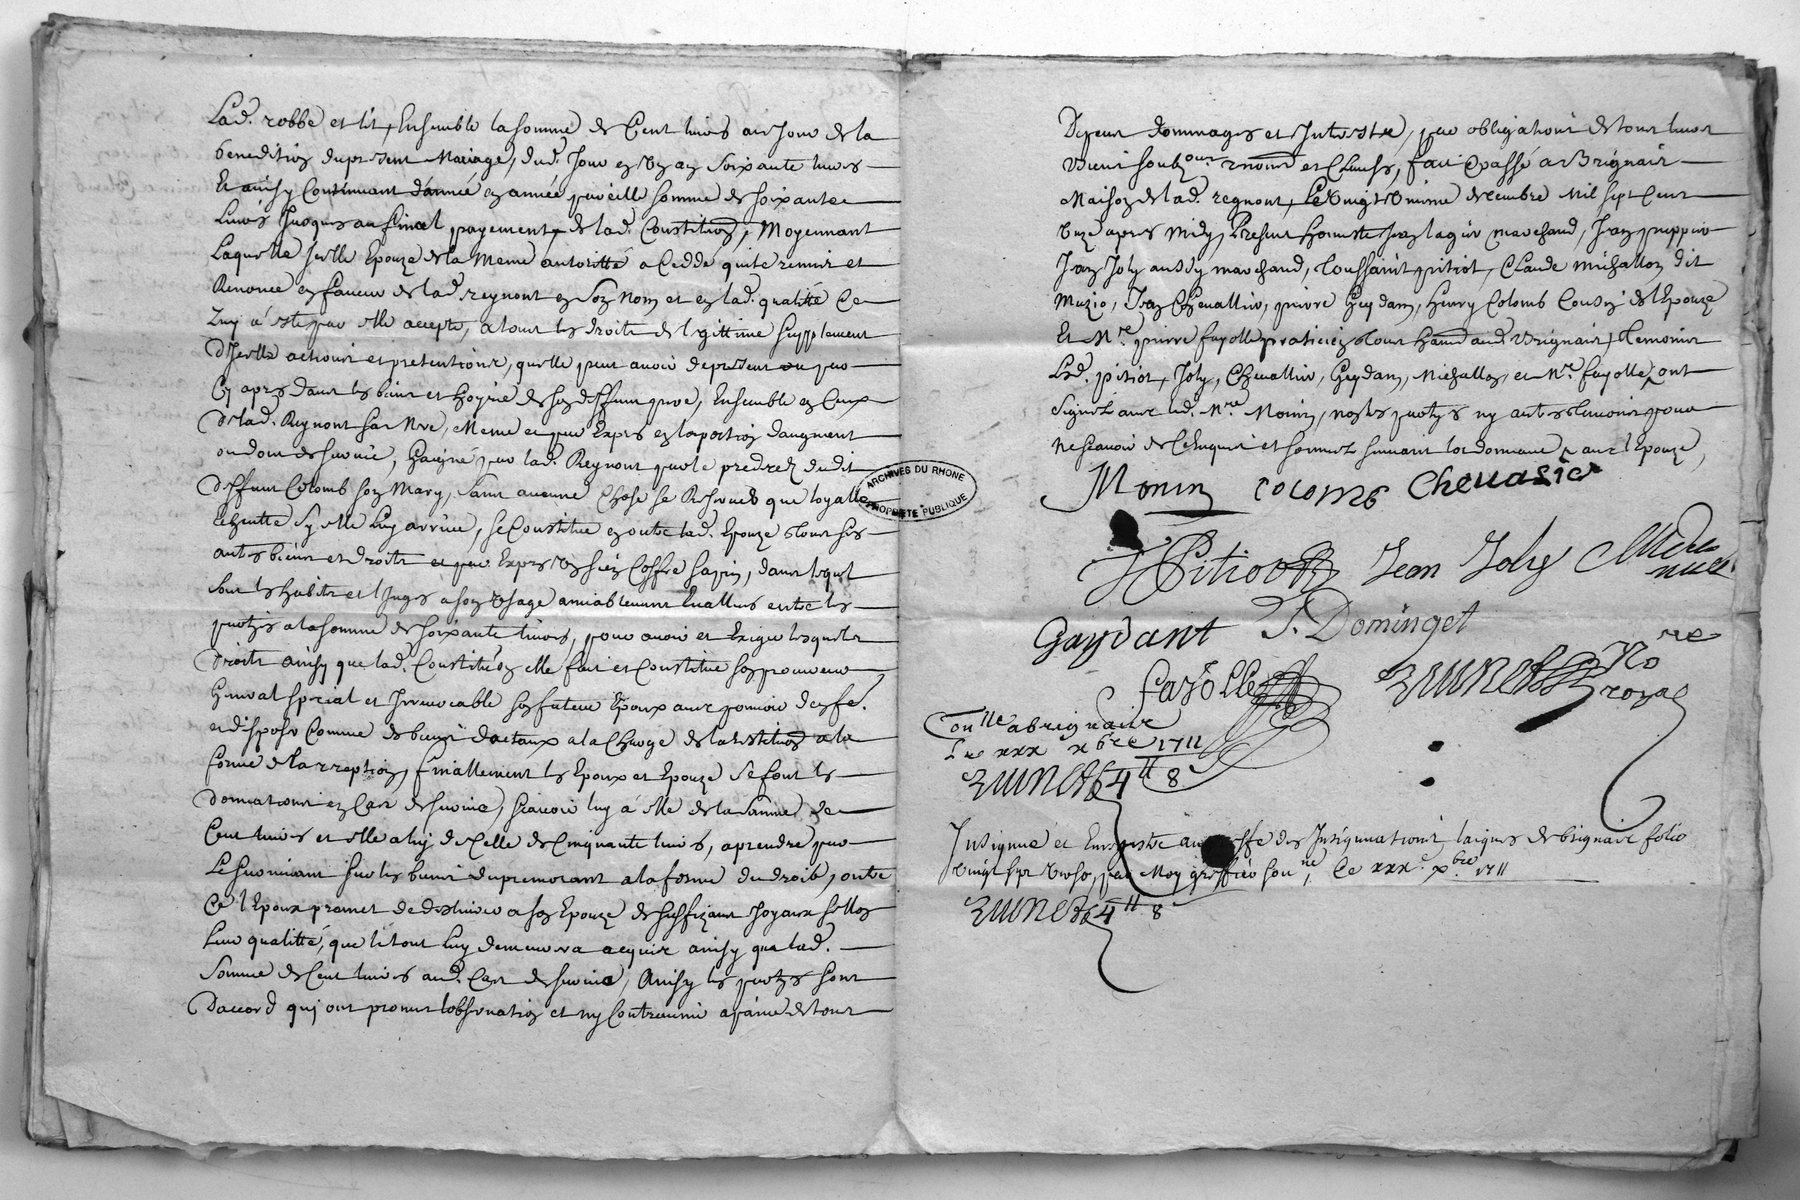 Lad. robbe et lit, Ensemble la somme de Cent livres au Jour de la
benediction du present Mariage, dud. Jour en un an soixante livres
Et ainsy Continuant d'année en année pareille somme de soixante
Livres Jusques au final payement de lad. Constitution, Moyennant
Laquelle Jcelle Epouze de la meme autoritté a Cedde quitte remis et
Renoncé en faveur de lad. reynont en son Nom et en lad. qualitté Ce
par elle accepté, a tous les droits de legittime supplement
d'Jcelle actions et pretentions, quelle peut avoir de present ou par
Cy apres dans les biens et hoyrie de son deffunt pere, Ensemble en Ceux
de lad. Reynont sa Mere, Meme et par Expres en la portion d'augment
ou don de survie, Gaigné par lad. Reynont par le predecez dudit
deffunt Colomb son Mary, sans aucune Chose se Reserver que loyalle
Escheutte sy elle Luy arrive, se Constitue en outre lad. Epouze tous ses
autres biens et droits et par Expres un sien Coffre sapin, dans lequel
sont les habits et linges a son usage amiablement Evallués entre les
parties a la somme de soixante livres, pour avoir et Exiger lesquels
droits ainsy que lad. Constitution elle fait et Constitue son procureur
General special et Jrrevocable son futeur Epoux avec pouvoir
et disposer Comme de biens dotaux a la Charge de la restitution a la
forme de la reception, finallement les Epoux et Epouze se font les
donnations en Cas de survie, scavoir luy a elle de la somme de
Cent livres et elle a luy de Celle de Cinquante livres, a prendre par
Le survivant sur les biens du premourant a la forme du droit, outre
Ce l'Epoux promet de a son Epouze de suffizans Joyaux sellon
Leur qualitté, que le tout Luy demeurera acquis ainsy que lad.
somme de Cent livres aud. Cas de survie, Ainsy les parties sont
d'accord quj ont promis lobservation et ny Contrevenir a paine de tous
Depens dommages et Jnterests, par obligation de tous leurs
biens soub. renon. et Clauses, fait et passé a Brignais
Maison de lad. reynont, Le vingt decembre Mil sept Cent
Unze apres midy, Present honneste Jean marchand, Jean
Jean Joly aussy marchand, Toussaint pitiot, Claude michallon dit
Jean Chevallier, pierre Geydan, henry Colomb Cousin de l'Epouze
Et Me. pierre fayolle praticien tous aud. Brignais, temoins
Led. pitiot, Joly, Chevallier, Geydan, Michallon, et Me. fayolle, ont
signé avec led. Me. Monin, non les parties ny autres temoins pour
ne scavoir de Ce Enquis et sommez suivant lordonnance, avec l'Epouze,
Monin Colomb Chevalier
Pitiot Jean Joly
Gaydant J. Dominget
fayolle Brunet Nore royal
Conlle a brignais
Le xxx xbre 1711
Brunet 4 tt 8
Jnsignué et Enregistré au greffe des Jnsignuations laiques de brignais folio
vingt sept verso, par Moy greffier sou.né, Ce xxxe xbre 1711
Brunet 4 tt 8
ARCHIVES DU RHONE
PROPRIETE PUBLIQUE